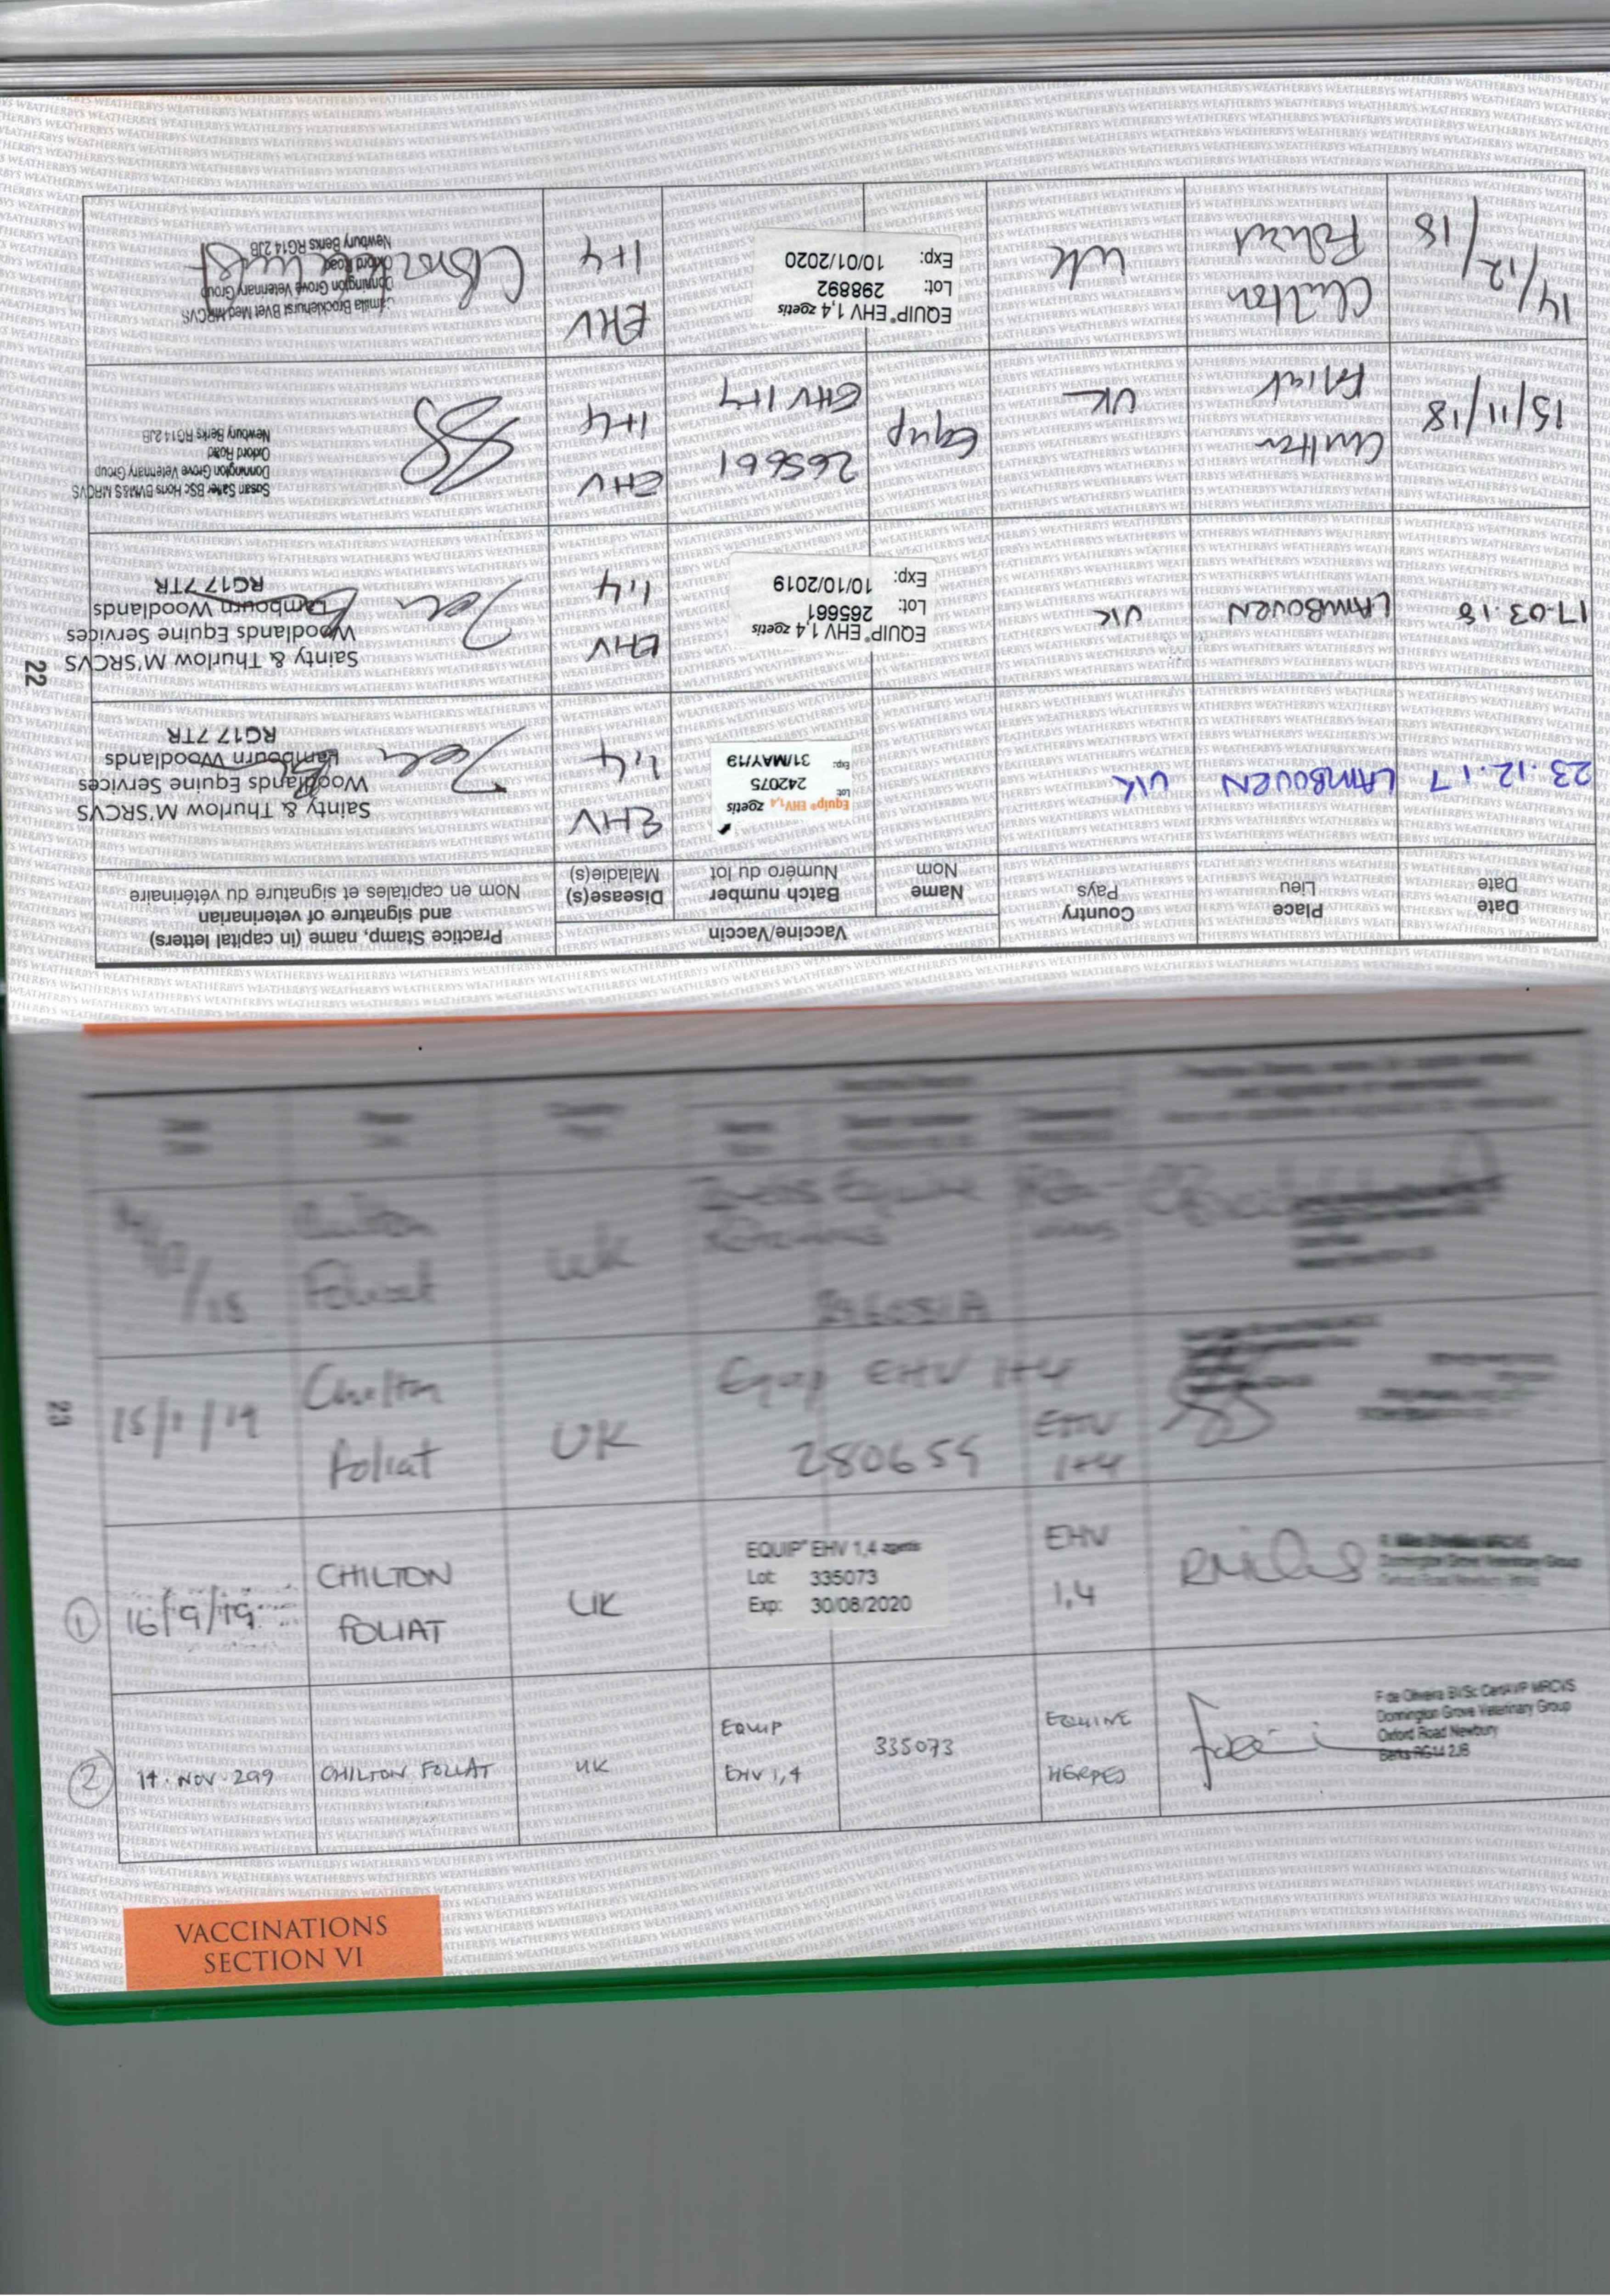 22
Date
Date
Place
Lieu
Country
Pays
Vaccine/Vaccin
Name
Nom
Batch number
Numéro du lot
Disease(s)
Maladie(s)
Practice Stamp, name (in capital letters)
and signature of veterinarian
Nom en capitales et signature du vétérinaire
23.12.17 LAMBOURN UK
Equip® EHV1,4 zoetis
Lot 242075
Exp: 31/MAY/19
EHV
1,4
Sainty & Thurlow M'SRCVS
Woodlands Equine Services
Lambourn Woodlands
RG17 7TR
17.03.18 LAMBOURN UK
EQUIP® EHV 1,4 zoetis
Lot: 265661
Exp: 10/10/2019
EHV
1,4
Sainty & Thurlow M'SRCVS
Woodlands Equine Services
Lambourn Woodlands
RG17 7TR
15/11/18
Chilton
Foliat
UK
Equip
265661
EHV 1+4
EHV
1+4
Susan Salter BSc Hons BVM&S MRCVS
Donnington Grove Veterinary Group
Oxford Road
Newbury Berks RG14 2JB
14/12/18
Chilton
Foliat
UK
EQUIP® EHV 1,4 zoetis
Lot: 298892
Exp: 10/01/2020
EHV
1+4
Camilla Brocklehurst BVet Med MRCVS
Donnington Grove Veterinary Group
Oxford Road
Newbury Berks RG14 2JB
23
Chilton
Foliat
UK
15/1/19
Chilton
Foliat
UK
Equip EHV 1+4
280659
EHV
1+4
1
16/9/19
CHILTON
FOLIAT
UK
EQUIP® EHV 1,4 zoetis
Lot: 335073
Exp: 30/08/2020
EHV
1,4
Donnington Grove Veterinary Group
2
14.NOV.2019
CHILTON FOLIAT
UK
EQUIP
EHV 1,4
335073
EQUINE
HERPES
F de Oliveira BVSc CertAVP MRCVS
Donnington Grove Veterinary Group
Oxford Road Newbury
Berks RG14 2JB
VACCINATIONS
SECTION VI